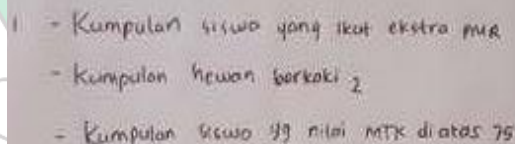 1 - Kumpulan siswa yang ikut ekstra PMR
- Kumpulan hewan berkaki 2
- Kumpulan siswa yg nilai MTK diatas 75